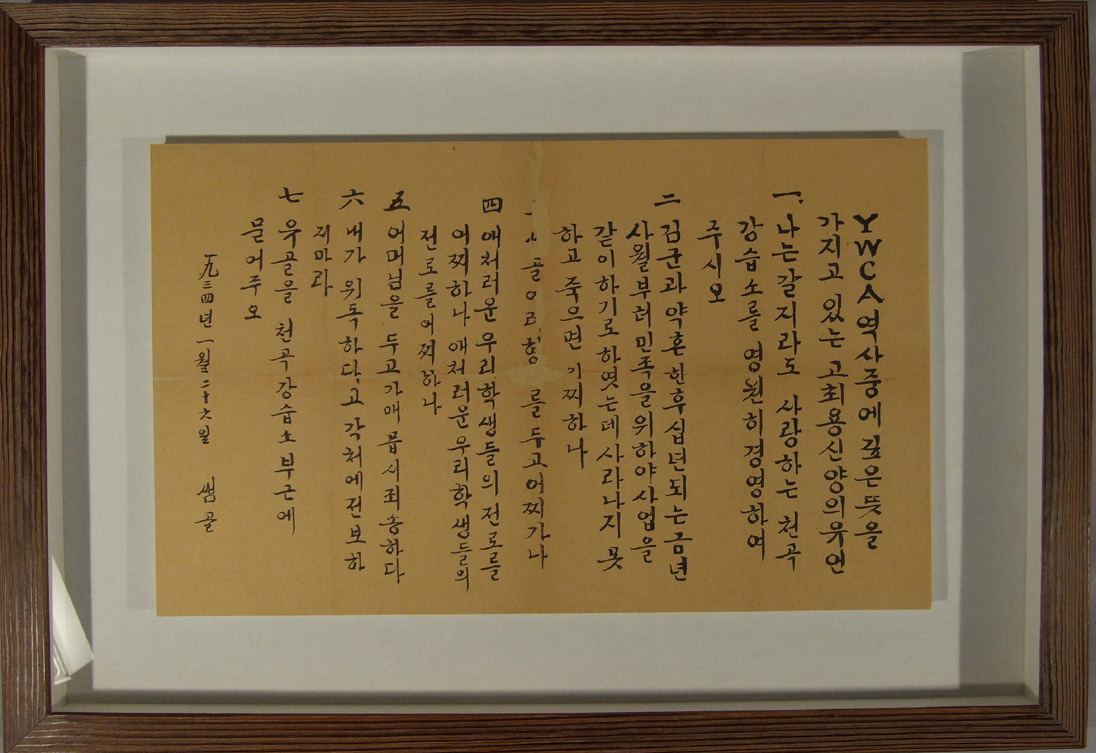 YWCA역사중에 깊은뜻을
가지고 있는 고최용신양의유언
一. 나는갈지라도 사랑하는 천곡
강습소를 영원히경영하여
주시오
二 김군과 약혼한후십년되는금년
사월부터민족을위하야사업을
같이하기로하엿는데사라나지 못
하고 죽으면 어찌하나
골 를 두고어찌가나
四 애처러운 우리학생들의 전로를
어찌하나 애처러운우리학생들의
전로를어찌하나
五 어머님을 두고가매 몹시죄송하다
六 내가 위독하다고 각처에전보하
지마라
七 유골을 천곡강습소부근에
묻어주오
一九三四년 一월二十六일 쌤골